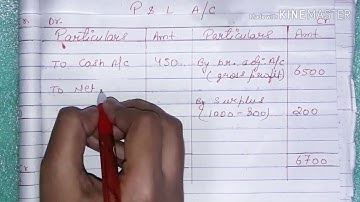 P & L A/C
Made With
KINEMASTER
Dr.
Particulars Amt Particulars Amt
To Cash A/C 450 By Dr. adj. A/c
(gross profit) 6500
To Net
By Surplus
(1000 - 800) 200
6700